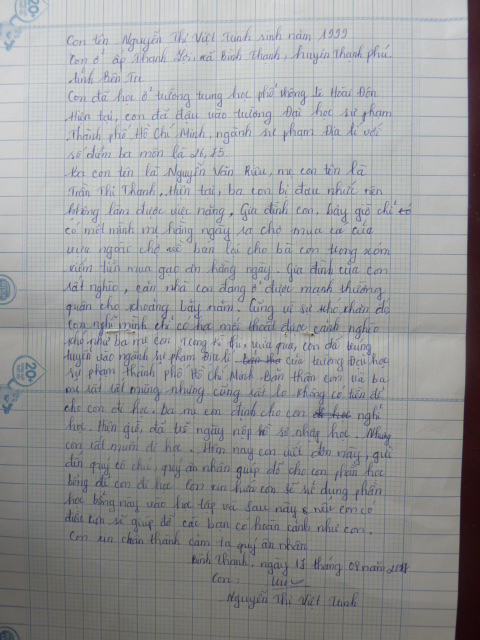 Con tên Nguyễn Thị Việt Trinh sinh năm 1999
Con ở ấp Thạnh Lợi, xã Bình Thạnh, huyện Thạnh phú
tỉnh Bến Tre
Con đã học ở trường trung học phổ thông Lê Hoài Đôn
Hiện tại, con đã đậu vào trường Đại học sư phạm
Thành phố Hồ Chí Minh, ngành sư phạm Địa lí với
số điểm ba môn là 26,75.
Ba con tên là Nguyễn Văn Riêu, mẹ con tên là
Trần Thị Thanh. Hiện tại, ba con bị đau nhức nên
không làm được việc nặng. Gia đình con bây giờ chỉ
có một mình mẹ hằng ngày ra chợ mua cá cua
ngoài chợ về bán lại cho bà con trong xóm
kiếm tiền mua gạo ăn hằng ngày. Gia đình của con
rất nghèo, căn nhà con đang ở được mạnh thường
quân cho khoảng bảy năm. Cũng vì sự khó khăn đó
con nghĩ mình chỉ có học mới thoát được cảnh nghèo
khó như ba mẹ con. Trong kì thi vừa qua, con đã trúng
tuyển vào ngành sư phạm Địa lí của trường Đại học
sư phạm thành phố Hồ Chí Minh. Bản thân con và ba
mẹ rất rất mừng nhưng cũng rất lo không có tiền để
cho con đi học. Ba mẹ con định cho con nghỉ
học. Hiện giờ, đã trễ ngày nộp hồ sơ nhập học. Nhưng
con rất muốn đi học. Hôm nay con viết đơn này, gửi
đến quý tổ chức, quý ân nhân giúp đỡ cho con phần học
bổng để con đi học. Con xin hứa con sẽ sử dụng phần
học bổng này vào học tập và sau này nếu con có
điều kiện sẽ giúp đỡ các bạn có hoàn cảnh như con.
Con xin chân thành cảm tạ quý ân nhân
Bình Thạnh, ngày tháng 08 năm
Con:
Nguyễn Thị Việt Trinh